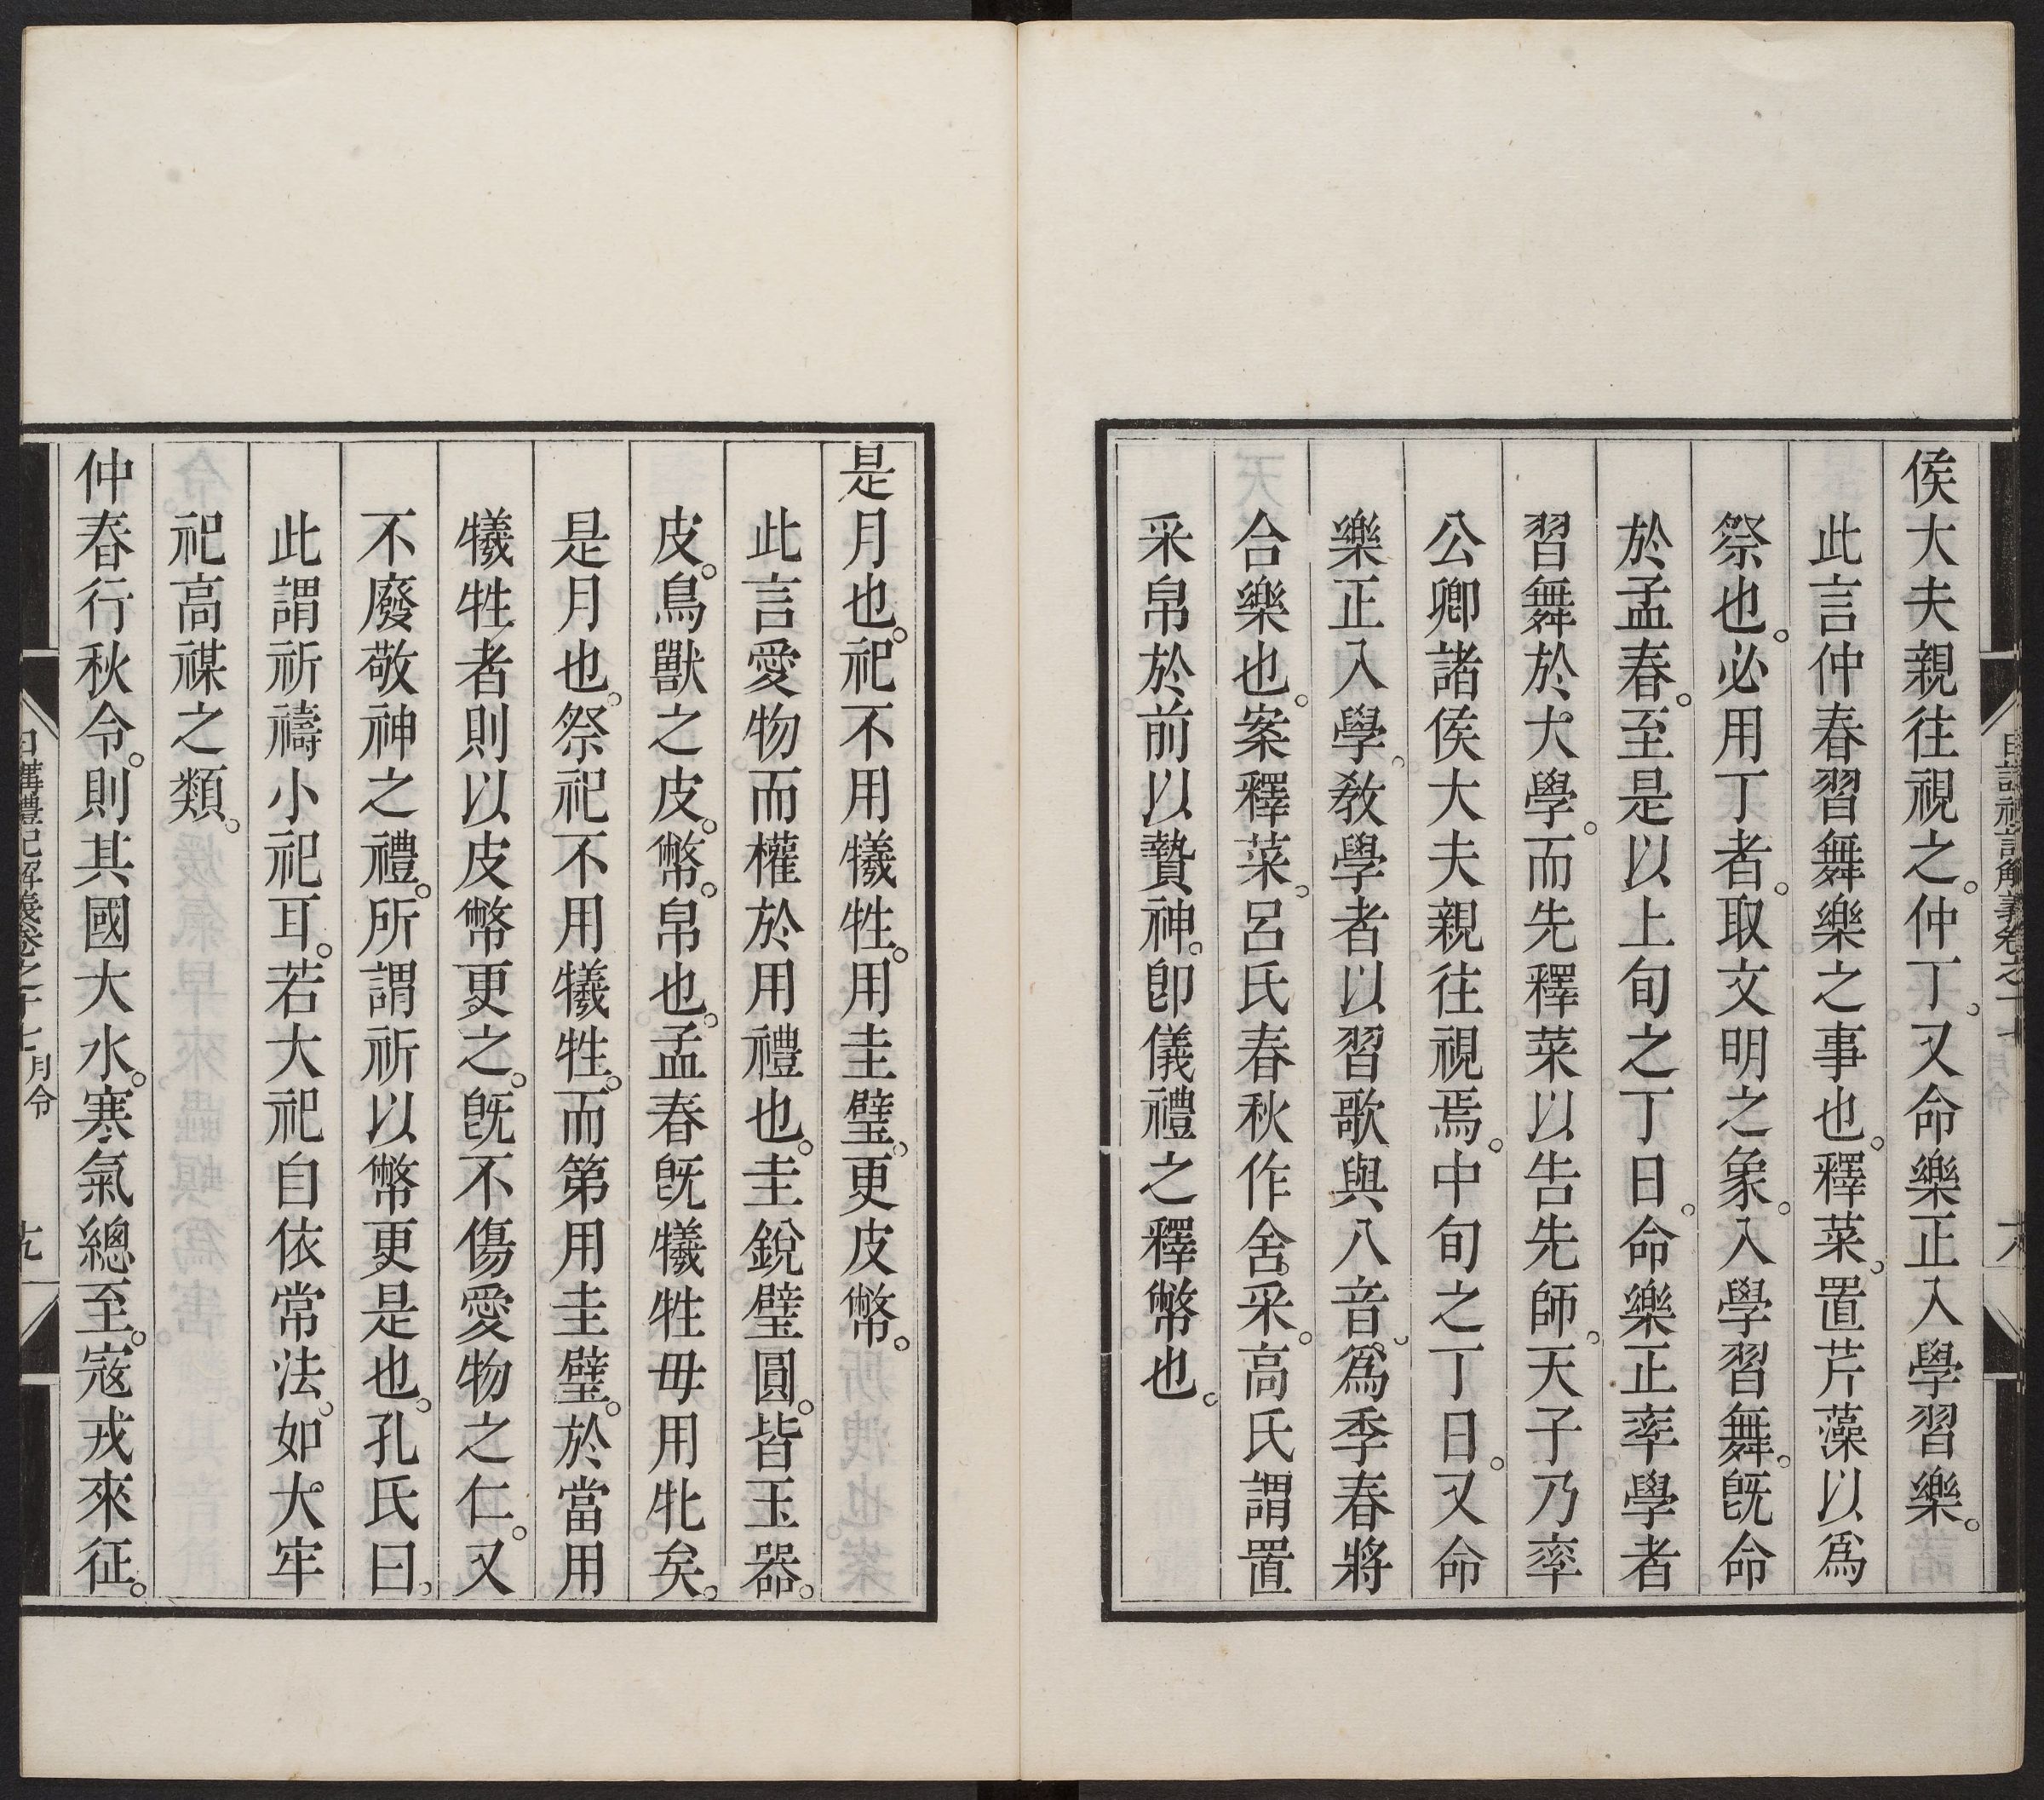 侯大夫親往視之。仲丁。又命樂正入學習樂。
此言仲春習舞樂之事也。釋菜。置芹藻以爲
祭也。必用丁者。取文明之象。入學習舞。既命
於孟春。至是以上旬之丁日。命樂正率學者
習舞於大學。而先釋菜以告先師。天子乃率
公卿諸侯大夫親往視焉。中旬之丁日。又命
樂正入學。敎學者以習歌與八音。爲季春將
合樂也。案釋菜。呂氏春秋作舍采。高氏謂置
采帛於前以贄神。卽儀禮之釋幣也。
是月也。祀不用犧牲。用圭璧。更皮幣。
此言愛物而權於用禮也。圭銳璧圓。皆玉器。
皮。鳥獸之皮。幣。帛也。孟春既犧牲毋用牝矣。
是月也。祭祀不用犧牲。而第用圭璧。於當用
犧牲者則以皮幣更之。既不傷愛物之仁。又
不廢敬神之禮。所謂祈以幣更是也。孔氏曰。
此謂祈禱小祀耳。若大祀自依常法。如大牢
祀高禖之類。
仲春行秋令。則其國大水。寒氣總至。寇戎來征。
日講禮記解義卷之十七 月令 十九